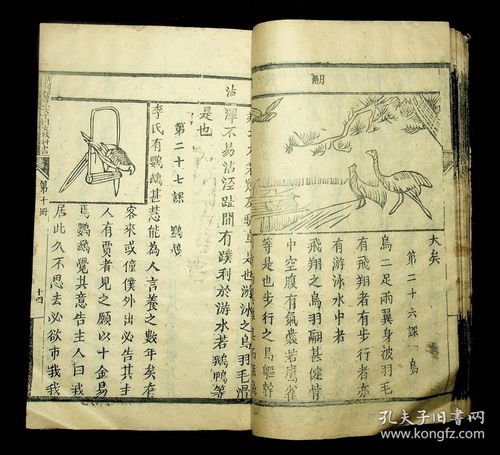 朙
大矣
第二十六課 鳥
鳥二足兩翼身被羽毛
有飛翔者有步行者亦
有游泳水中者
飛翔之鳥羽翮甚健骨
中空腹有氣囊若鷹雀
等是也步行之鳥軀幹
沾
澤不易沾溼趾間有蹼利於游水若鵝鴨等
是也
第二十七課 鸚鵡
李氏有鸚鵡甚慧能為人言養之數年矣有
客來或僮僕外出必告其主
人有賈者見之願以十金易
焉鸚鵡覺其意告主人曰我
居此久不思去必欲市我我
第十冊
十四
孔夫子旧书网
www.kongfz.com